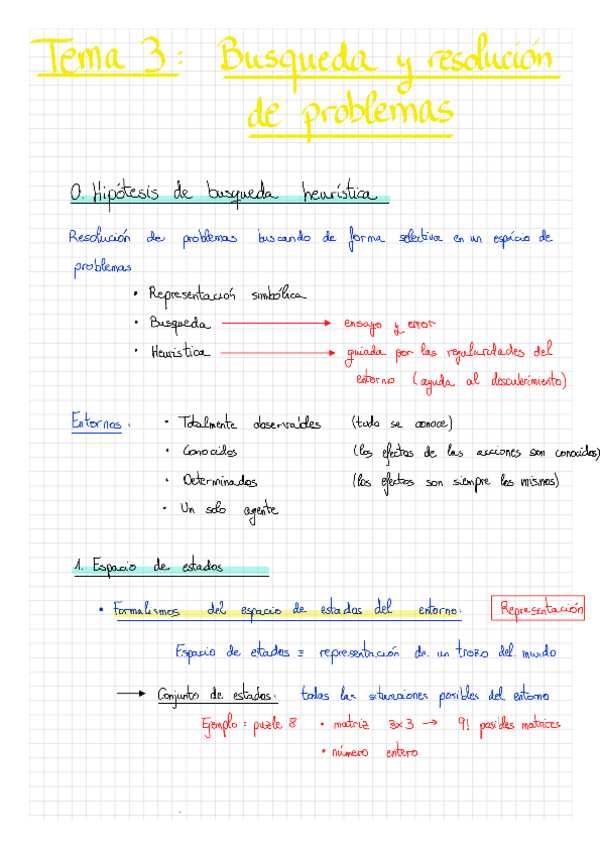 Tema 3: Busqueda y resolución
de problemas
0. Hipótesis de busqueda heurística
Resolución de problemas buscando de forma selectiva en un espacio de
problemas
• Representación simbólica
• Busqueda → ensayo y error
• Heurística → guiada por las regularidades del
entorno (ayuda al descubrimiento)
Entornos: • Totalmente observables (todo se conoce)
• Conocidos (los efectos de las acciones son conocidos)
• Determinados (los efectos son siempre los mismos)
• Un solo agente
1. Espacio de estados
• Formalismos del espacio de estados del entorno: Representación
Espacio de estados = representación de un trozo del mundo
→ Conjunto de estados: todas las situaciones posibles del entorno
Ejemplo: puzle 8 • matriz 3x3 → 9! posibles matrices
• número entero